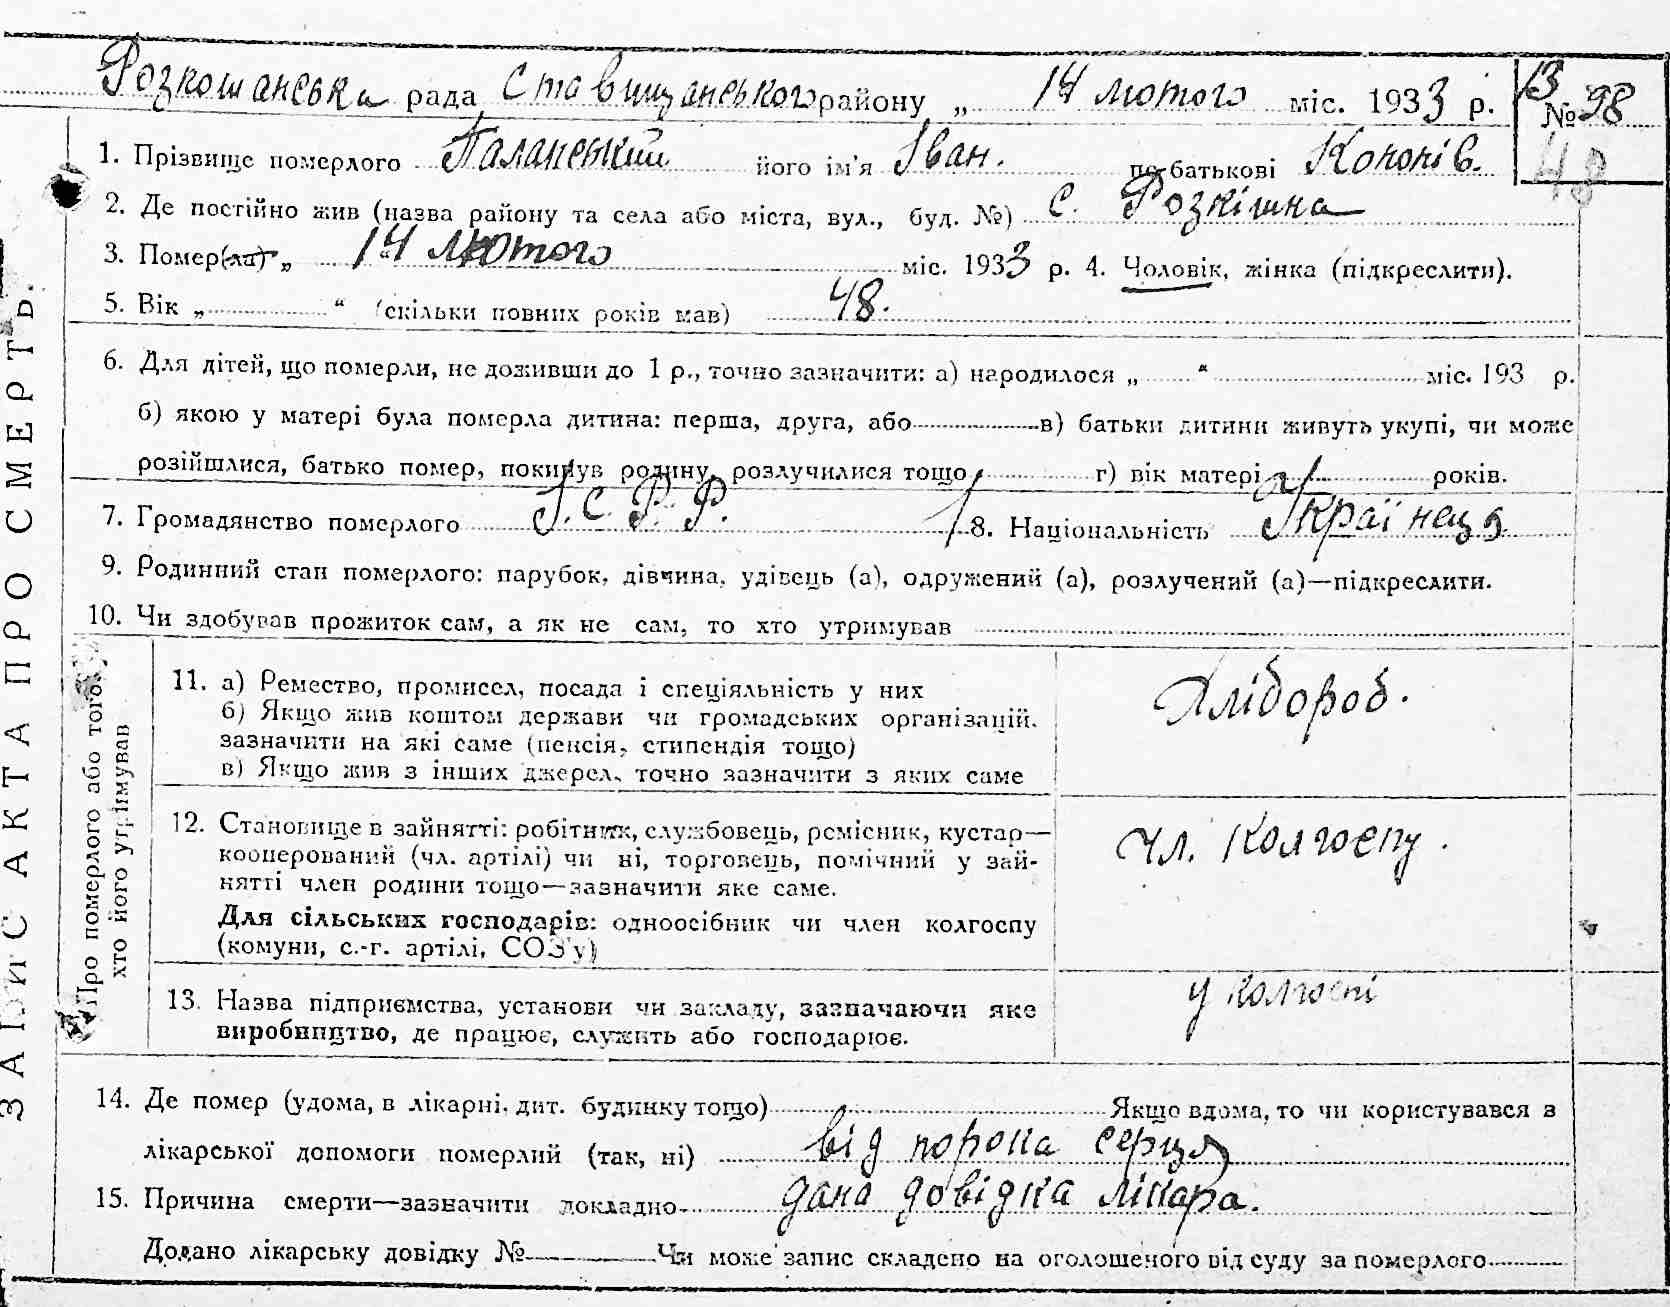 Розкошанська рада Ставищанського району „ 14 лютого міс. 1933 р.
13
№ 98
48
1. Прізвище померлого Паланський його ім'я Іван. по-батькові Кононів.
2. Де постійно жив (назва району та села або міста, вул., буд. №) с. Розкішна
3. Помер(ла) „ 14 лютого міс. 1933 р. 4. Чоловік, жінка (підкреслити).
5. Вік „ “ (скільки повних років мав) 48.
6. Для дітей, що померли, не доживши до 1 р., точно зазначити: а) народилося „ “ міс. 193 р.
б) якою у матері була померла дитина: перша, друга, або в) батьки дитини живуть укупі, чи може
розійшлися, батько помер, покинув родину, розлучилися тощо г) вік матері років.
7. Громадянство померлого У.С.Р.Р. 8. Національність Українець
9. Родинний стан померлого: парубок, дівчина, удівець (а), одружений (а), розлучений (а)—підкреслити.
10. Чи здобував прожиток сам, а як не сам, то хто утримував
ЗАПИС АКТА ПРО СМЕРТЬ.
Про померлого або того,
хто його утримував
11. а) Ремество, промисел, посада і спеціяльність у них
б) Якщо жив коштом держави чи громадських організацій.
зазначити на які саме (пенсія, стипендія тощо)
в) Якщо жив з інших джерел, точно зазначити з яких саме
Хлібороб.
12. Становище в зайнятті: робітник, службовець, ремісник, кустар—
кооперований (чл. артілі) чи ні, торговець, помічний у зай-
нятті член родини тощо—зазначити яке саме.
Для сільських господарів: одноосібник чи член колгоспу
(комуни, с.-г. артілі, СОЗ'у)
чл. колгоспу.
13. Назва підприємства, установи чи закладу, зазначаючи яке
виробництво, де працює, служить або господарює.
у колгоспі
14. Де помер (удома, в лікарні, дит. будинку тощо) Якщо вдома, то чи користувався з
лікарської допомоги померлий (так, ні) від порока серця
15. Причина смерти—зазначити докладно дана довідка лікара.
Додано лікарську довідку № Чи може запис складено на оголошеного від суду за померлого